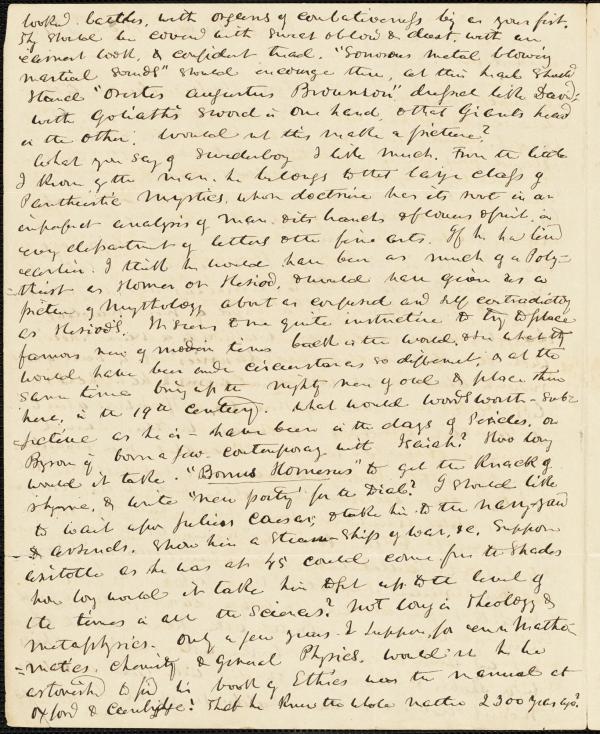 looked battles, with organs of combativeness big as your fist.
It should be covered with sweat oblood & dust, with an
earnest look, & confident tread. "Sonorous metal blowing
martial sounds" should encourage them, at their head should
stand "Orestes Augustus Brownson" dressed like David,
with Goliath's sword in one hand, & that Giants head
in the other. Would not this make a picture?
What you say of Swedenborg I like much. From the little
I know of the man, he belongs to that large class of
Pantheistic Mystics, whose doctrine has its root in an
imperfect analysis of man, & its branch & flowers & fruit, in
every department of letters & the fine arts. If he had lived
earlier, I think he would have been as much of a Poly-
=theist as Homer or Hesiod, & would have given us a
picture of mythology about as confused and self contradictory
as Hesiod's. It seems to me quite instructive to try to place
famous men of modern times back in the world, & see what they
would have been under circumstances so different, & at the
same time bring up the mighty men of old & place them
here, in the 19th century. What would Wordsworth - sub-
=jective as he is - have been in the days of Pericles, or
Byron if born a few contemporary with Isaiah? How long
would it take "Bonus Homerus" to get the knack of
rhyme, & write "new poetry" for the Dial? I should like
to wait upon Julius Caesar, & take him to the navy-yard
& arsenals. Show him a Steam-Ship of war, &c. Suppose
Aristotle as he was at 45 could come from the Shades
how long would it take him to get up to the level of
the times in all the Sciences? Not long in Theology &
metaphysics. Only a few years I suppose, for even Mathe-
=matics, Chemistry & General Physics. Would not he be
astonished to find his book of Ethics was the manual at
Oxford & Cambridge? That he knew the whole matter 2300 years ago?